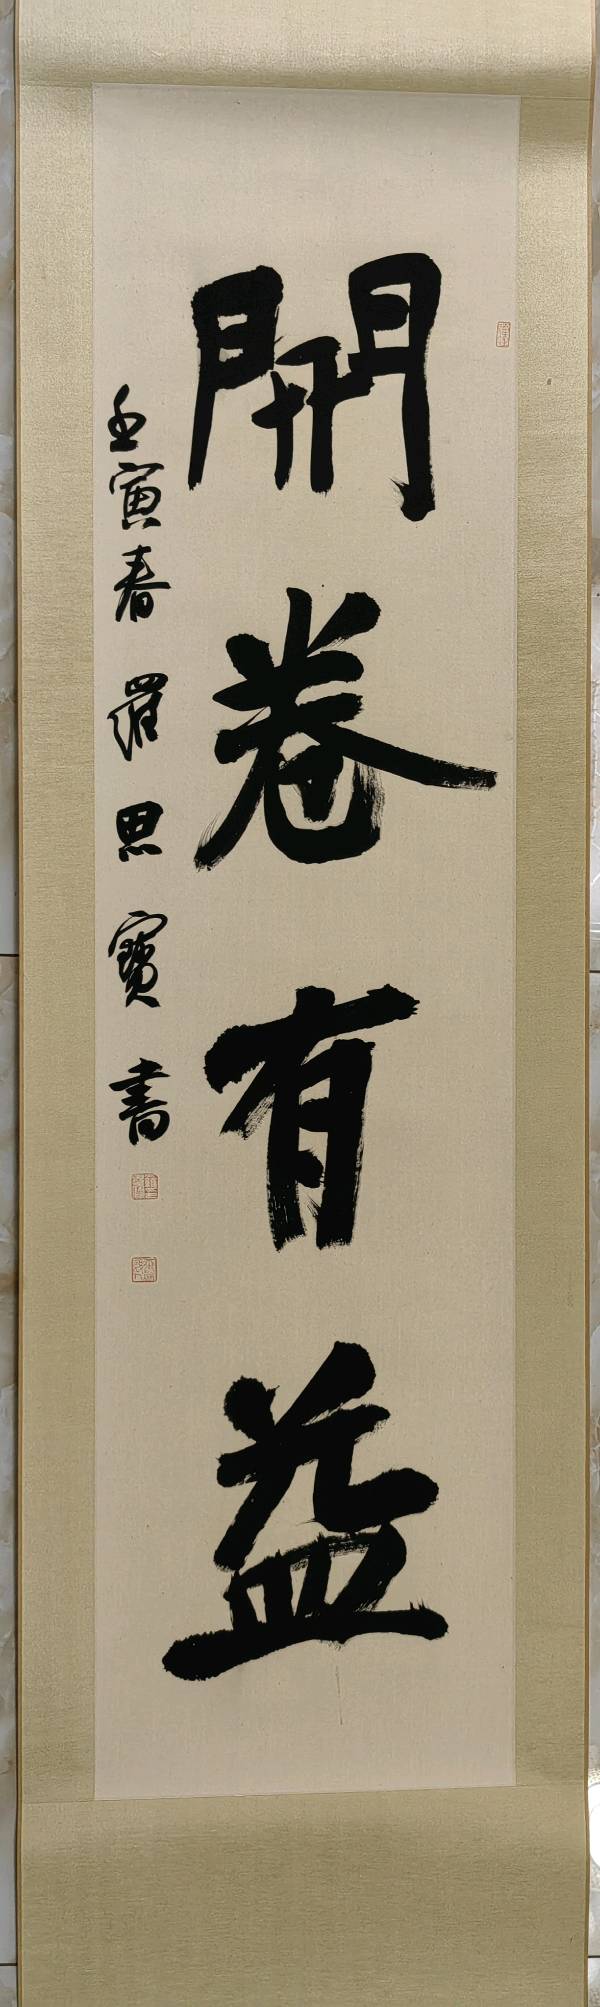 開卷有益
壬寅春羅思寶書